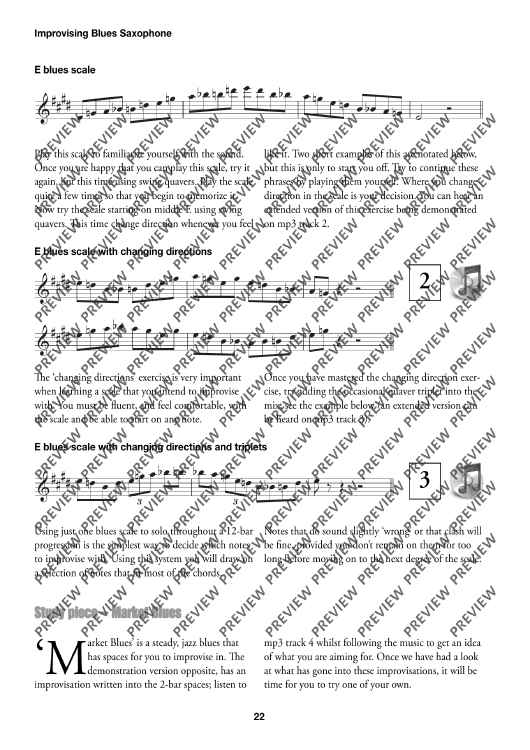 Improvising Blues Saxophone
E blues scale
Play this scale to familiarize yourself with the sound.
Once you are happy that you can play this scale, try it
again, but this time using swing quavers. Play the scale
quite a few times so that you begin to memorize it.
Now try the scale starting on middle E using swing
quavers. This time change direction whenever you feel
like it. Two short examples of this are notated below,
but this is only to start you off. Try to continue these
phrases by playing them yourself. Where you change
direction in the scale is your decision. You can hear an
extended version of this exercise being demonstrated
on mp3 track 2.
E blues scale with changing directions
2
The ‘changing directions’ exercise is very important
when learning a scale that you intend to improvise
with. You must be fluent, and feel comfortable, with
the scale and be able to start on any note.
Once you have mastered the changing direction exer-
cise, try adding the occasional quaver triplet into the
mix, see the example below (an extended version can
be heard on mp3 track 3).
E blues scale with changing directions and triplets
3
3
3
Using just one blues scale to solo throughout a 12-bar
progression is the simplest way to decide which notes
to improvise with. Using this system you will draw on
a selection of notes that fit most of the chords.
Notes that do sound slightly ‘wrong’ or that clash will
be fine, provided you don’t remain on them for too
long before moving on to the next degree of the scale.
Study piece – Market Blues
‘Market Blues’ is a steady, jazz blues that
has spaces for you to improvise in. The
demonstration version opposite, has an
improvisation written into the 2-bar spaces; listen to
mp3 track 4 whilst following the music to get an idea
of what you are aiming for. Once we have had a look
at what has gone into these improvisations, it will be
time for you to try one of your own.
22
PREVIEW